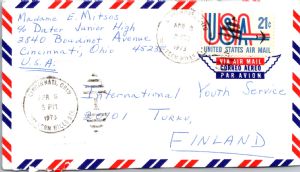 Madame E. Mitsos
% Dater Junior High
2840 Boudinot Avenue
Cincinnati, Ohio 45238
U.S.A.
APR 9
1973
USA 21c
UNITED STATES AIR MAIL
VIA AIR MAIL
CORREO AEREO
PAR AVION
CINCINNATI, OHIO
APR 9
5 PM
1973
International Youth Service
01 Turku,
FINLAND